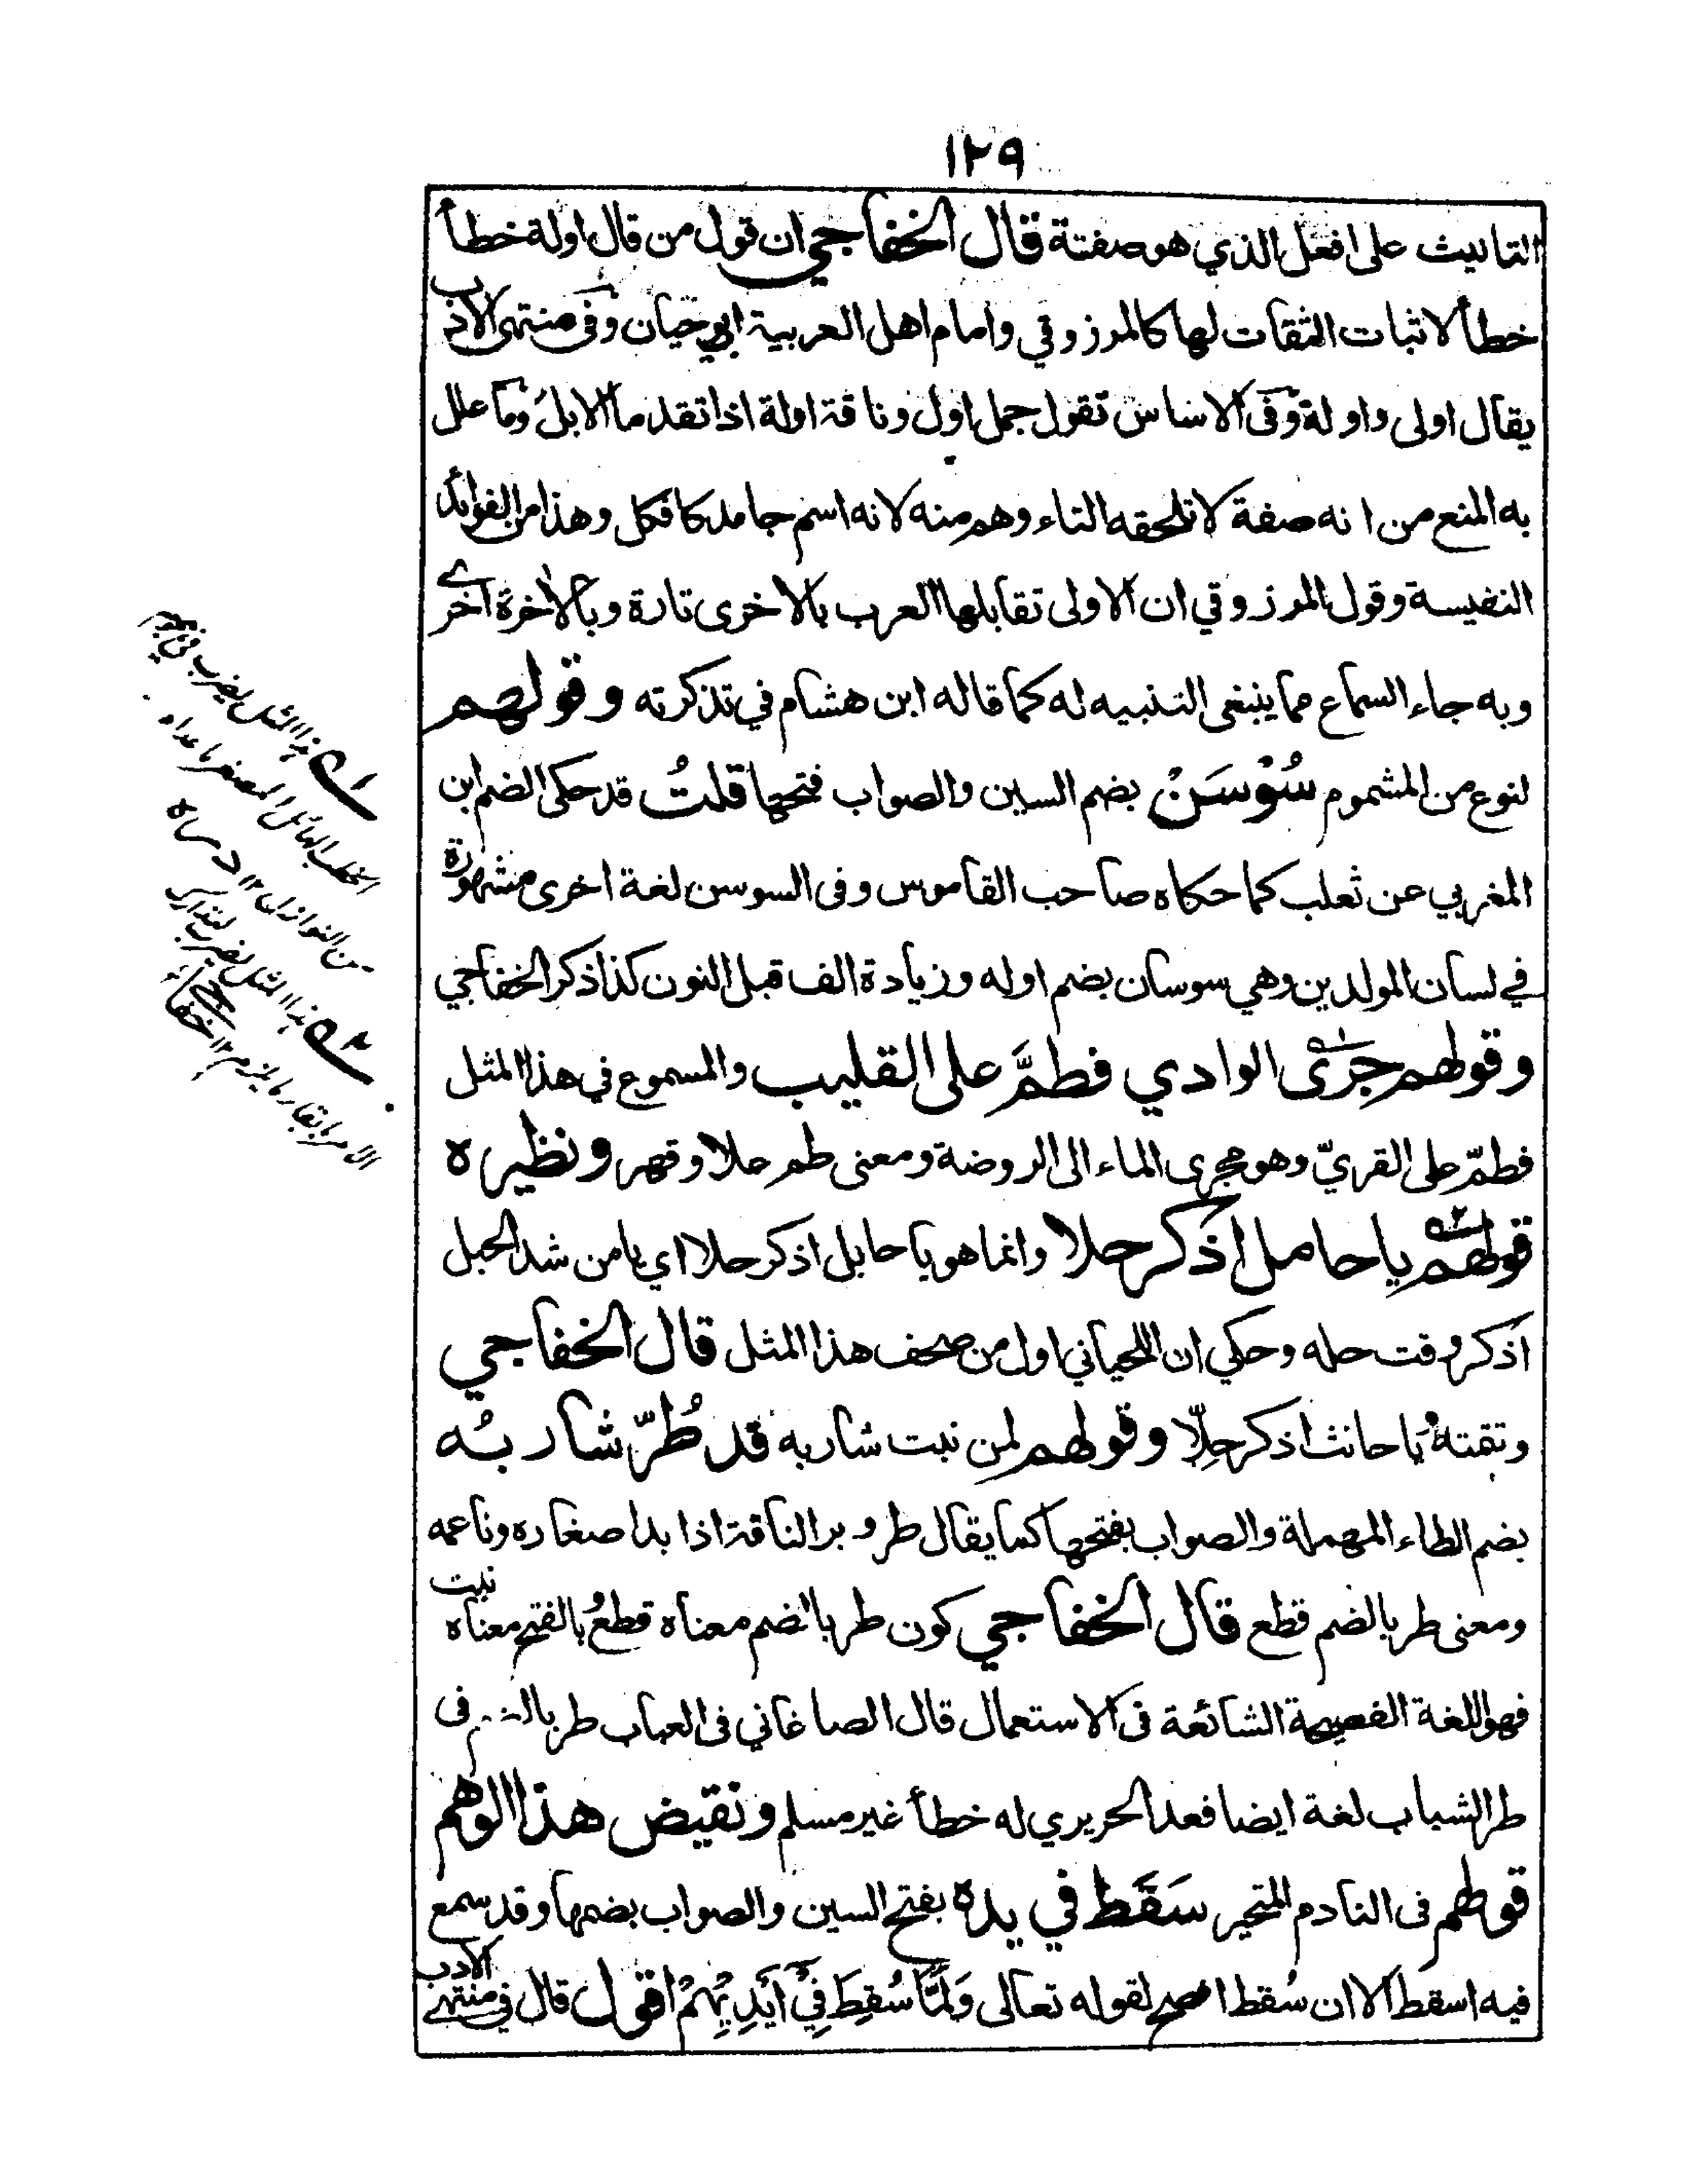 ١٢٩
التانيث على افعل الذي هو صفتة قال الخفاجي ان قول من قال اولة خطأ
خطأ لاثبات الثقات لها كالمرزوقي وامام اهل العربية ابي حيان وفى منتهى الادب
يقال اولى واولة وفى الاساس تقول جمل اول وناقة اولة اذا تقدما الابل وما علل
به المنع من انه صفة لا تلحقه التاء وهم منه لانه اسم جامد كافكل وهذا من الفوائد
النفيسة وقول المرزوقي ان الاولى تقابلها العرب بالاخرى تارة وبالاخرة اخرى
وبه جاء السماع مما ينبغى التنبيه له كما قاله ابن هشام في تذكرته وقولهم
لنوع من المشموم سُوْسَنْ بضم السين والصواب فتحها قلتُ قد حكى الضم ابن
المغربي عن ثعلب كما حكاه صاحب القاموس وفى السوسن لغة اخرى مشهورة
في لسان المولدين وهي سوسان بضم اوله وزيادة الف قبل النون كذا ذكر الخفاجي
وقولهم جَرَى الوادي فطمَّ على القليب والمسموع في هذا المثل
فطمّ على القريّ وهو مجرى الماء الى الروضة ومعنى طم علا وقهر ونظيره
قولهم يا حامل اذكر حلا وانما هو يا حابل اذكر حلا اي يا من شد الحبل
اذكر وقت حله وحكي ان اللحياني اول من صحف هذا المثل قال الخفاجي
وتقته يا حانث اذكر حِلّا وقولهم لمن نبت شاربه قد طُرّ شاربُه
بضم الطاء المهملة والصواب بفتحها كما يقال طر وبر الناقة اذا بدا صغاره وناعمه
ومعنى طر بالضم قطع قال الخفاجي كون طر بالضم معناه قطع بالفتح معناه نبت
فهو اللغة الفصيحة الشائعة فى الاستعمال قال الصاغاني فى العباب طر بالضم فى
طر الشباب لغة ايضا فعد الحريري له خطأ غير مسلم ونقيض هذا الوهم
قولهم فى النادم المتحير سَقَط في يده بفتح السين والصواب بضمها وقد سمع
فيه اسقط الا ان سُقط اصح لقوله تعالى وَلَمَّا سُقِطَ فِيْٓ اَيْدِيْهِمْ اقول قال في منتهى الادب
هذا المثل يضرب
هذا المثل يضرب